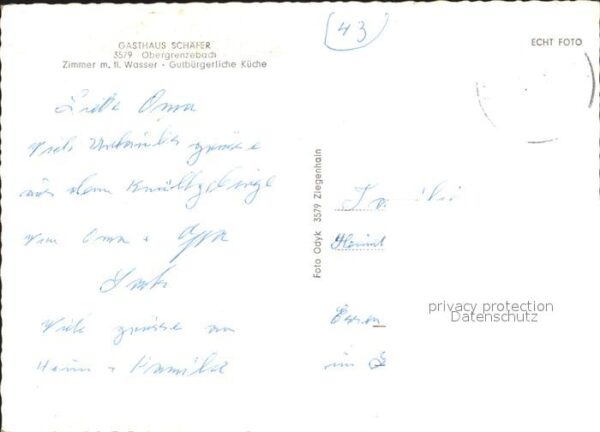 GASTHAUS SCHÄFER
3579 Obergrenzebach
Zimmer m. fl. Wasser · Gutbürgerliche Küche
43
ECHT FOTO
Oma
Viele Urlaubs grüsse
aus dem Knüllgebirge
Oma + Opa
Viele grüsse an
+ Familie
Foto Odyk 3579 Ziegenhain
Familie
privacy protection
Datenschutz